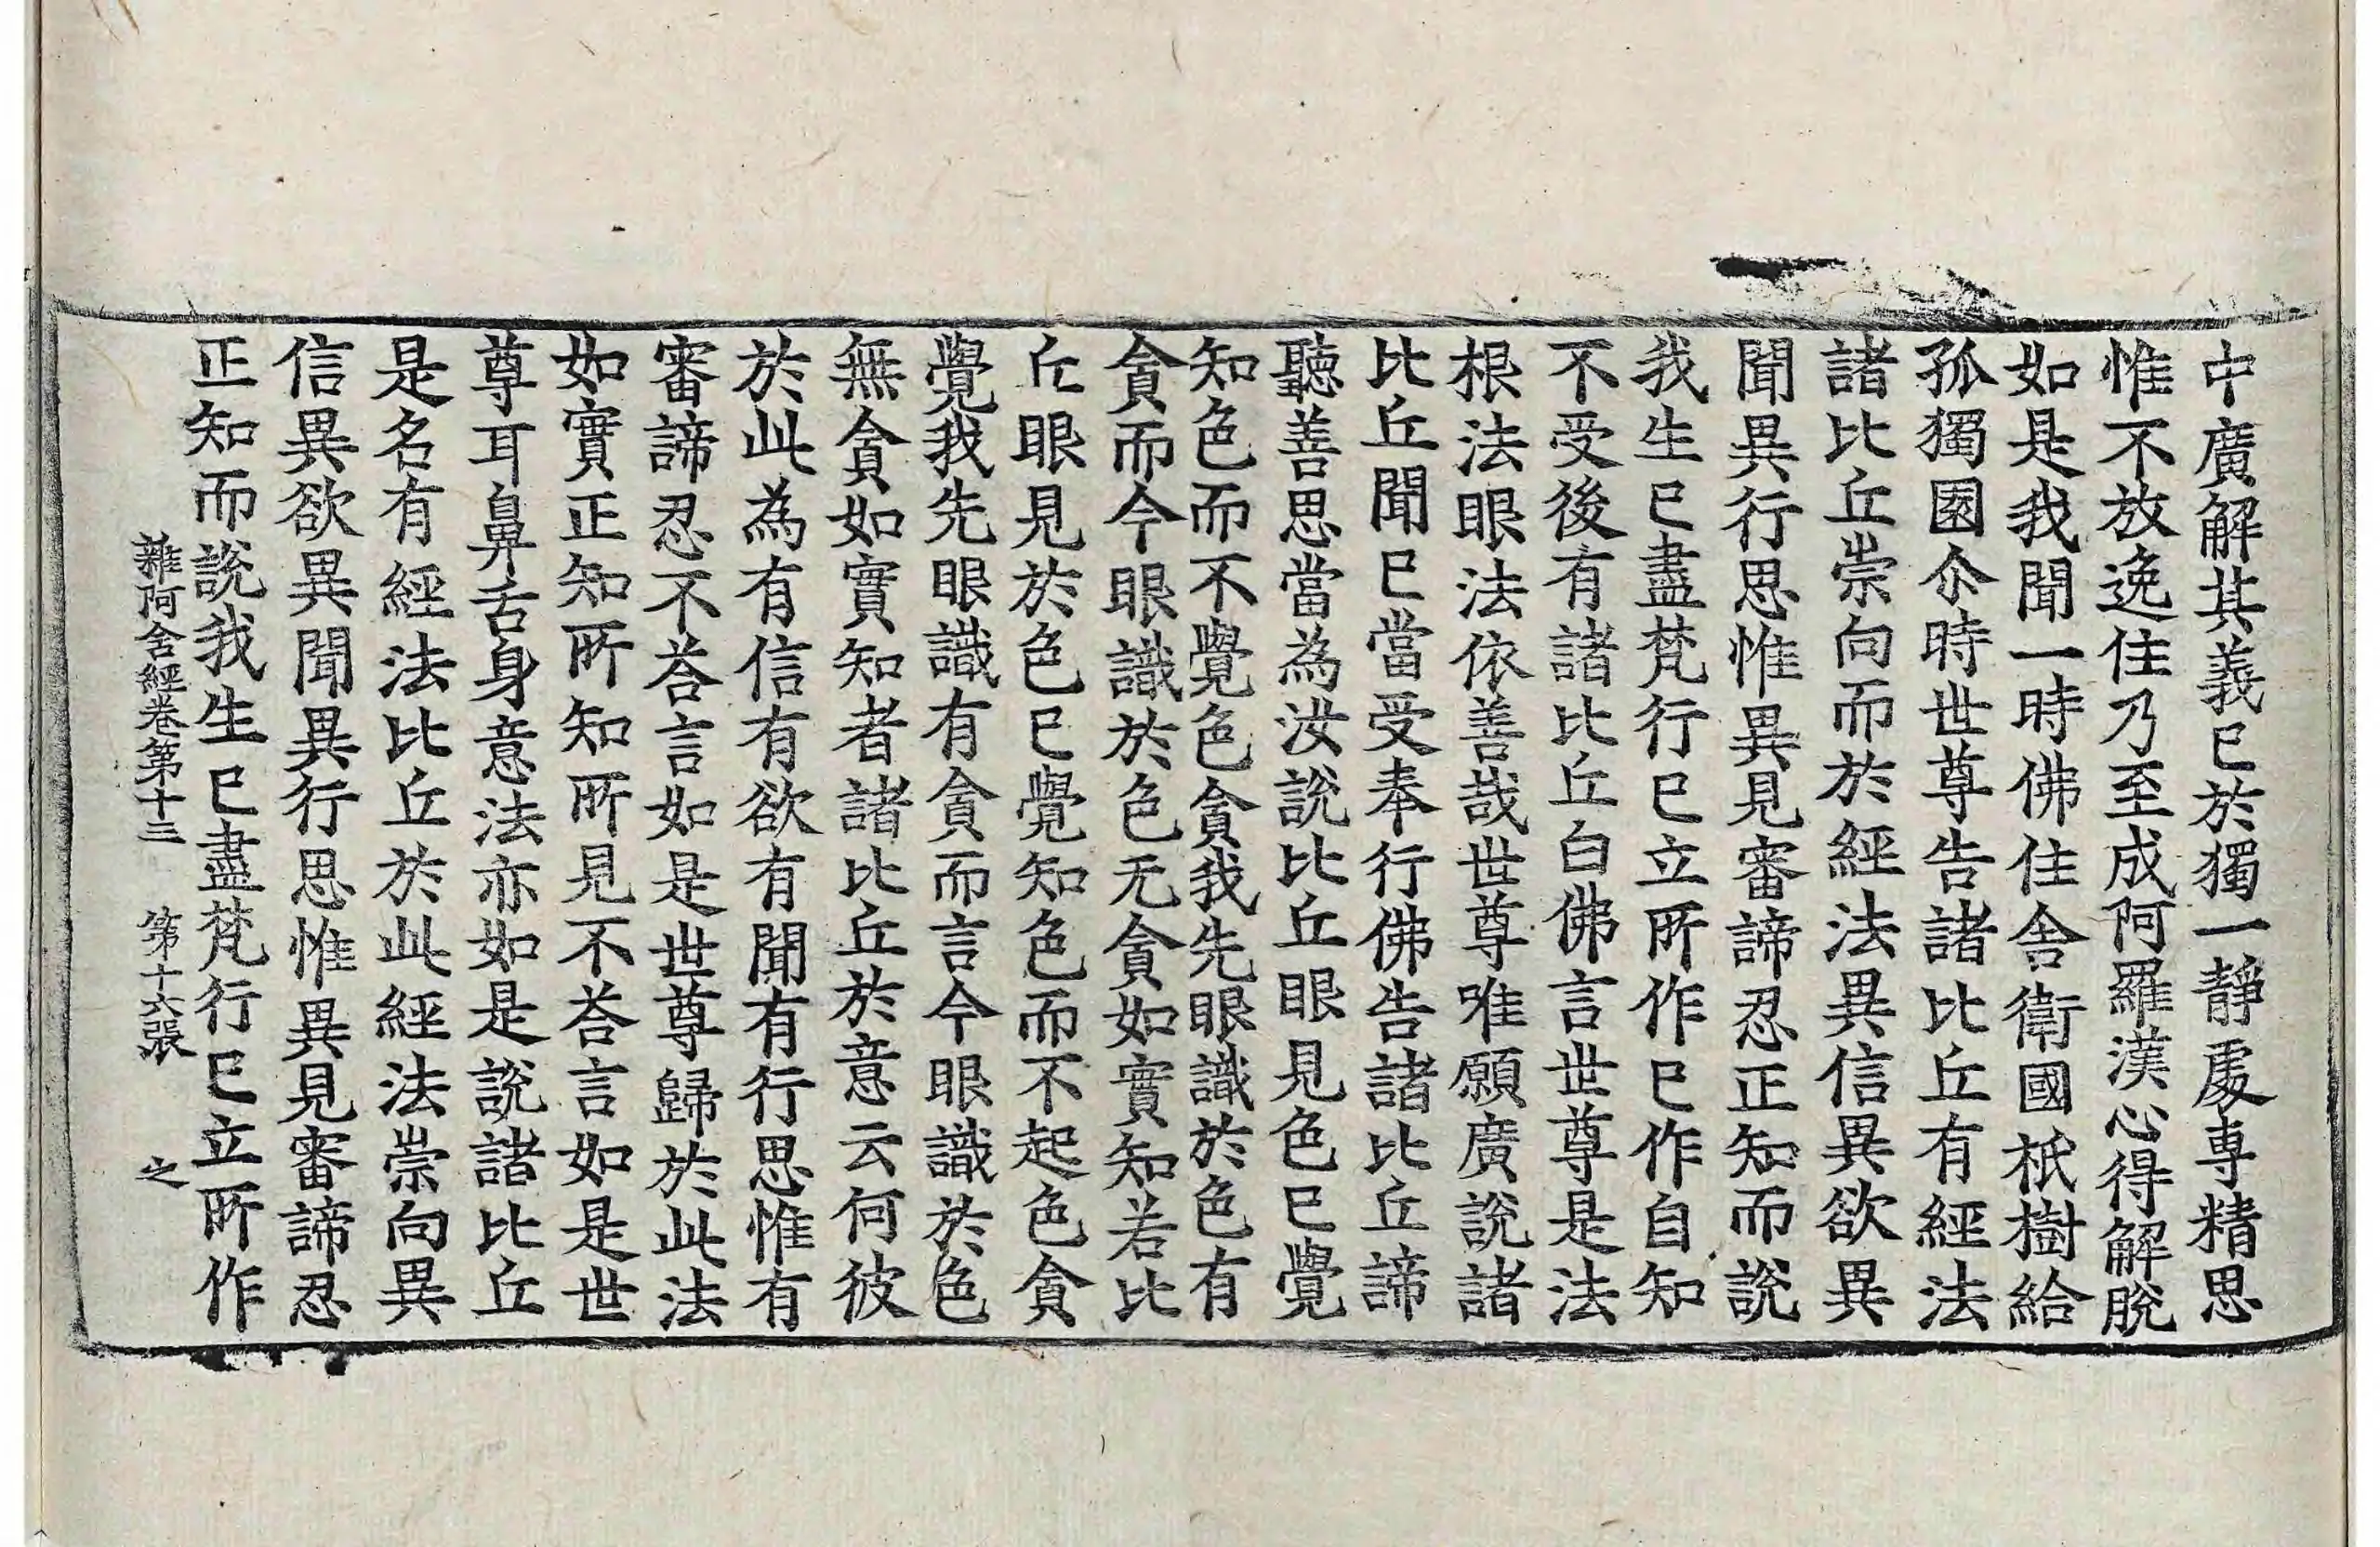 中廣解其義已於獨一靜處專精思
惟不放逸住乃至成阿羅漢心得解脫
如是我聞一時佛住舍衛國祇樹給
孤獨園尒時世尊告諸比丘有經法
諸比丘崇向而於經法異信異欲異
聞異行思惟異見審諦忍正知而說
我生已盡梵行已立所作已作自知
不受後有諸比丘白佛言世尊是法
根法眼法依善哉世尊唯願廣說諸
比丘聞已當受奉行佛告諸比丘諦
聽善思當為汝說比丘眼見色已覺
知色而不覺色貪我先眼識於色有
貪而今眼識於色无貪如實知若比
丘眼見於色已覺知色而不起色貪
覺我先眼識有貪而言今眼識於色
無貪如實知者諸比丘於意云何彼
於此為有信有欲有聞有行思惟有
審諦忍不荅言如是世尊歸於此法
如實正知所知所見不荅言如是世
尊耳鼻舌身意法亦如是說諸比丘
是名有經法比丘於此經法崇向異
信異欲異聞異行思惟異見審諦忍
正知而說我生已盡梵行已立所作
雜阿含經卷第十三 第十六張 之